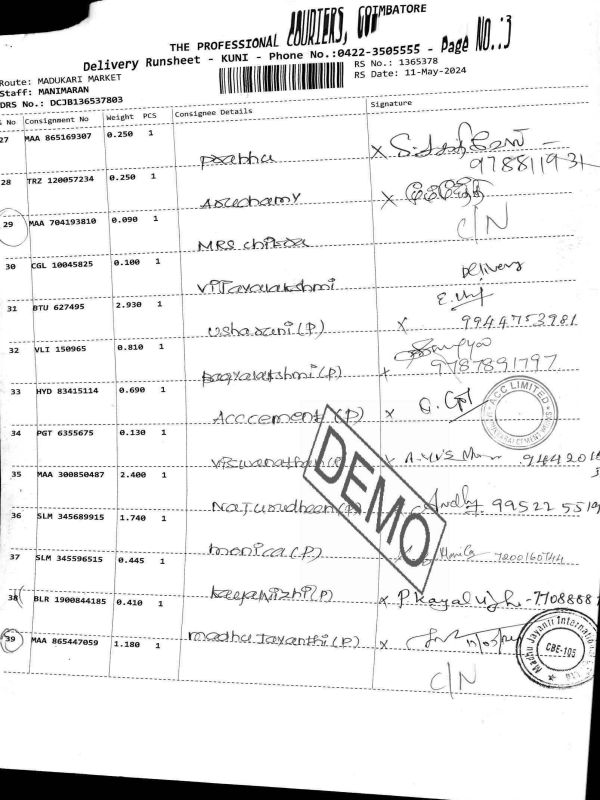 THE PROFESSIONAL COURIERS, COIMBATORE
Delivery Runsheet - KUNI - Phone No.:0422-3505555 - Page NO.:3
Route: MADUKARI MARKET
RS No.: 1365378
Staff: MANIMARAN
RS Date: 11-May-2024
DRS No.: DCJB136537803
S No Consignment No Weight PCS Consignee Details Signature
27 MAA 865169307 0.250 1
Prabhu x 978811931
28 TRZ 120057234 0.250 1
x
29 MAA 704193810 0.090 1 C/N
MRS chitra
30 CGL 10045825 0.100 1 Delivery
vijayalakshmi
31 BTU 627495 2.930 1
usharani (P) x 9944753981
32 VLI 150965 0.810 1
bagyalakshmi (P) x 9787891797
33 HYD 83415114 0.690 1
Acccement (P) x
ACC LIMITED
34 PGT 6355675 0.130 1
viswanathan (P) x 9442016
35 MAA 300850487 2.400 1
99522 5519
36 SLM 345689915 1.740 1
monica (P) 7200160744
37 SLM 345596515 0.445 1
kayalvizhi (P) x P.Kayalvizhi - 7708888
38 BLR 1900844185 0.410 1
madhu Jayanthi (P) x
39 MAA 865447059 1.180 1
C/N
Madhu Jayanti International
CBE-105
DEMO